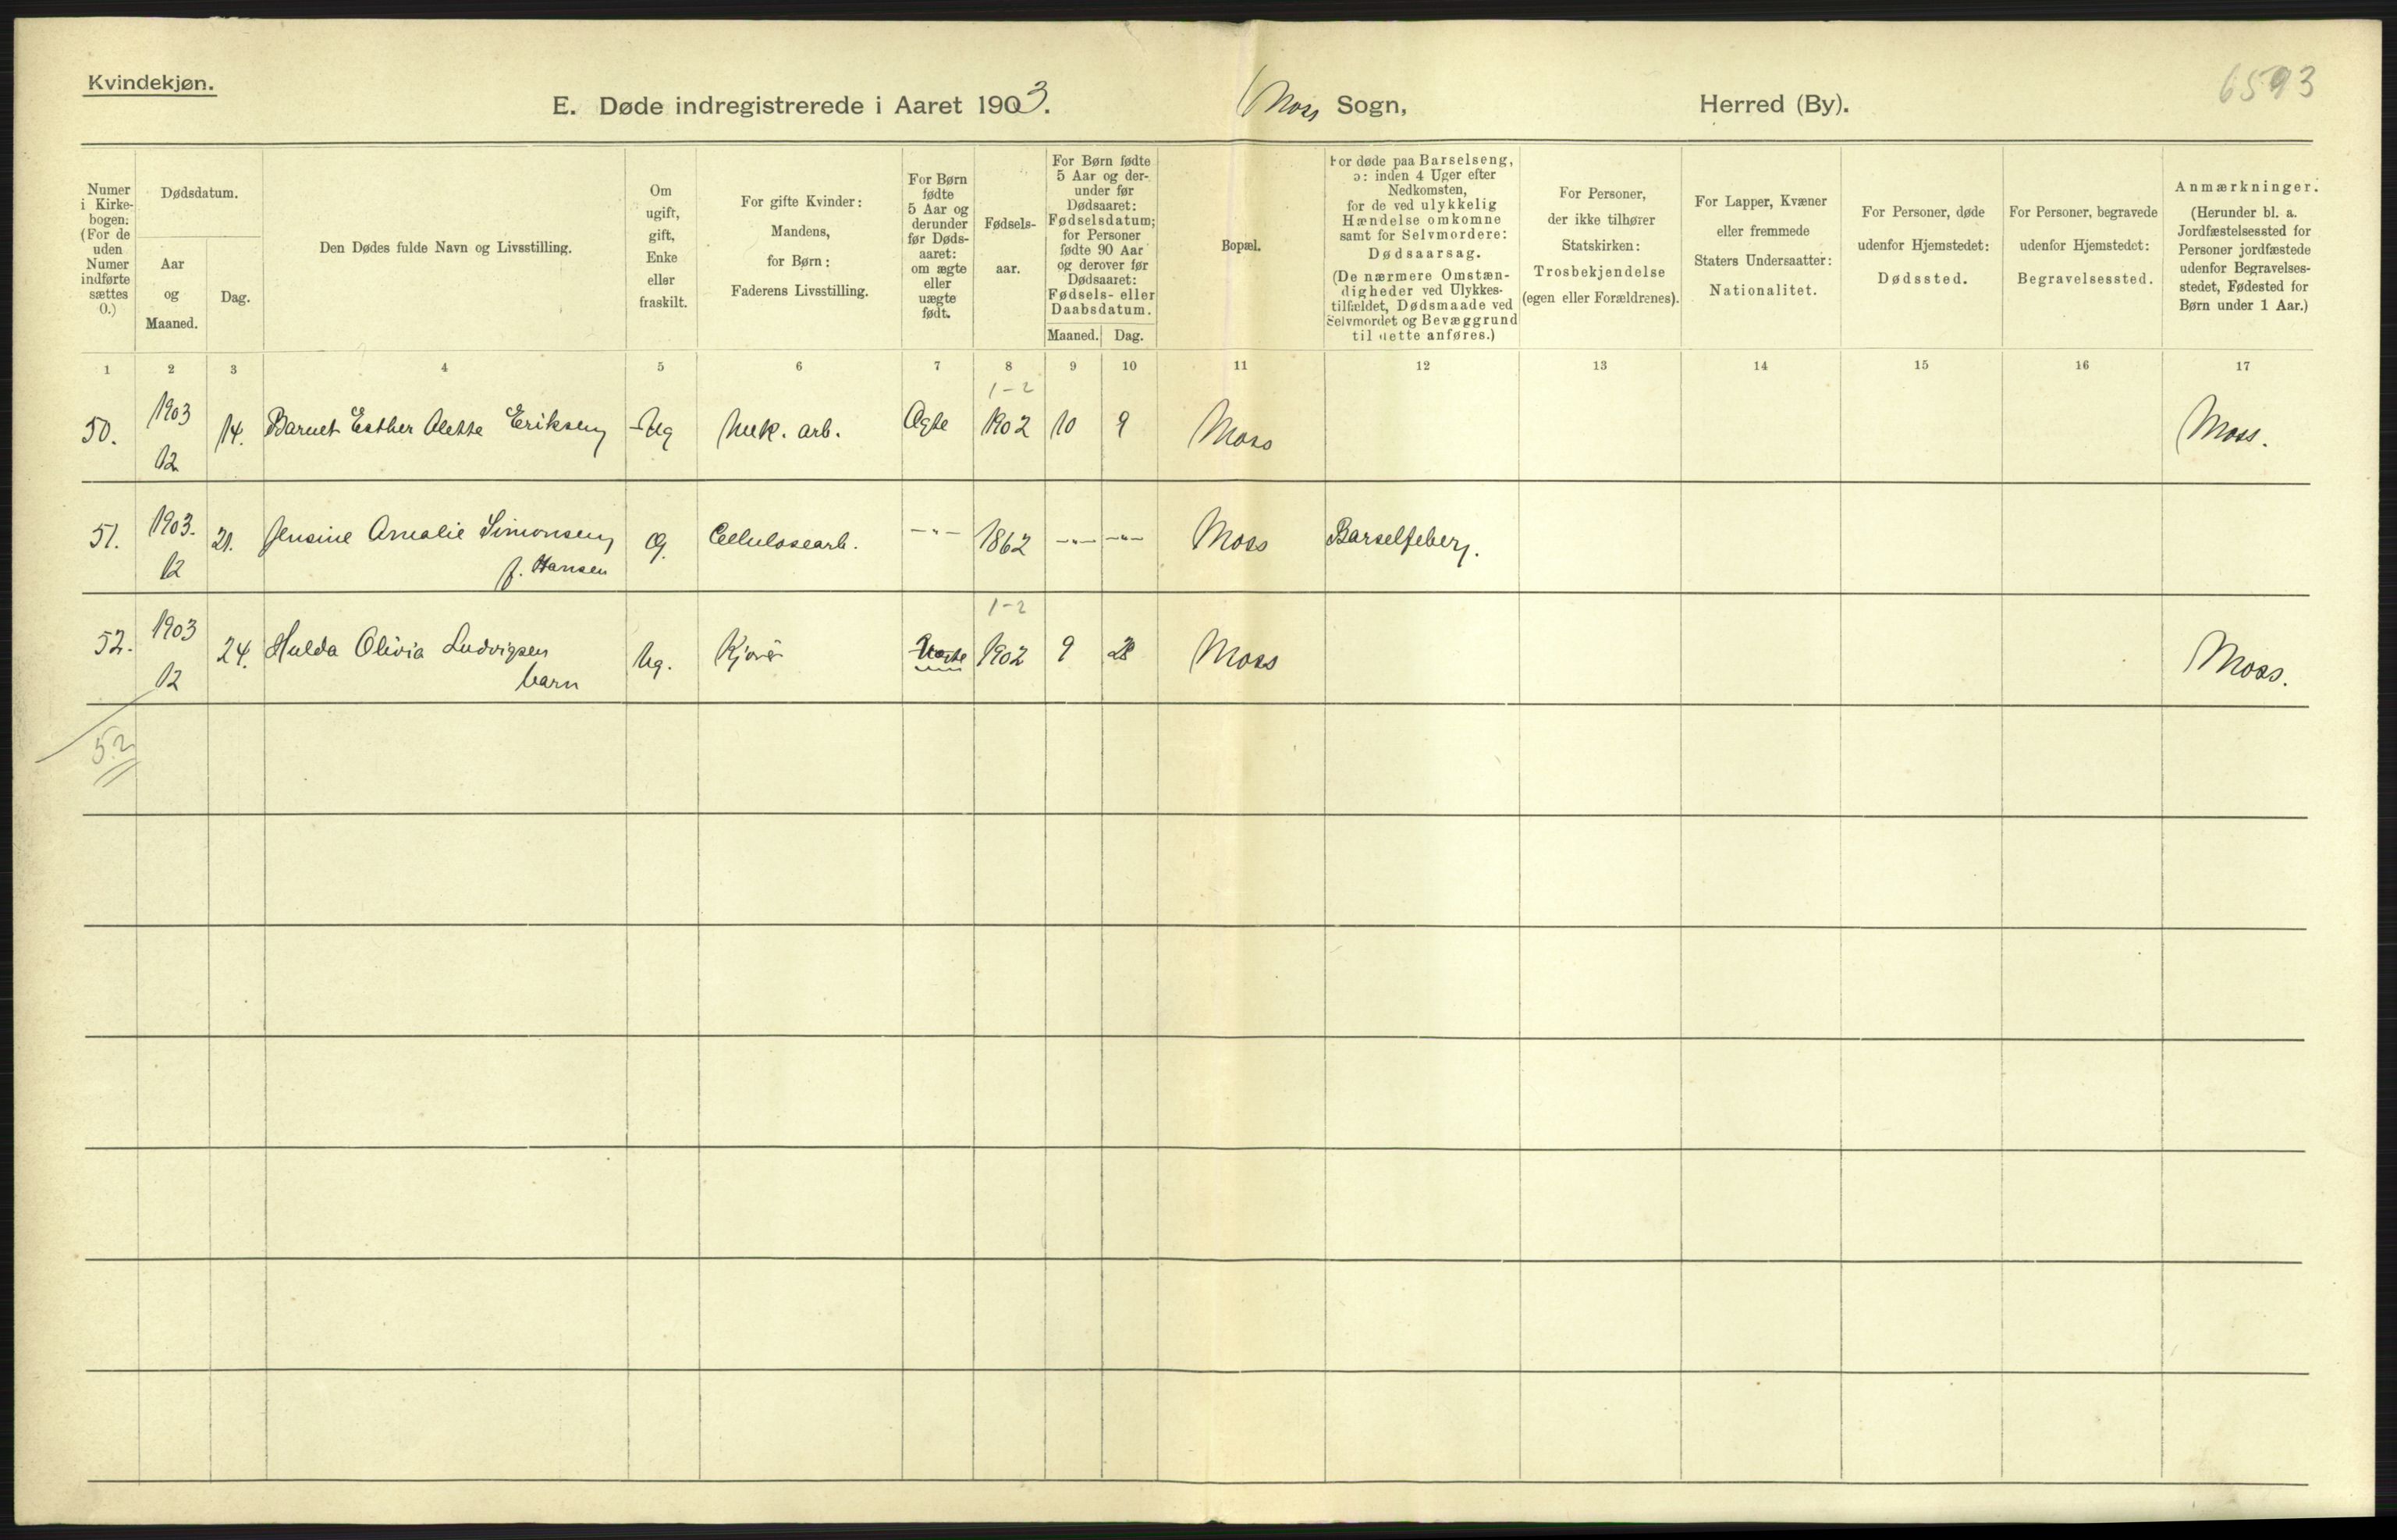 Kvindekjøn.
6593
E. Døde indregistrerede i Aaret 1903. Moss Sogn, Herred (By).
Numer i Kirke-bogen. (For de uden Numer indførte sættes 0.)
Dødsdatum.
Aar og Maaned.
Dag.
Den Dødes fulde Navn og Livsstilling.
Om ugift, gift, Enke eller fraskilt.
For gifte Kvinder: Mandens, for Børn: Faderens Livsstilling.
For Børn fødte 5 Aar og derunder før Døds-aaret: om ægte eller uægte født.
Fødsels-aar.
For Børn fødte 5 Aar og der-under før Dødsaaret: Fødselsdatum; for Personer fødte 90 Aar og derover før Dødsaaret: Fødsels- eller Daabsdatum.
Maaned. Dag.
Bopæl.
For døde paa Barselseng, ɔ: inden 4 Uger efter Nedkomsten, for de ved ulykkelig Hændelse omkomne samt for Selvmordere: Dødsaarsag. (De nærmere Omstæn-digheder ved Ulykkes-tilfældet, Dødsmaade ved Selvmordet og Bevæggrund til dette anføres.)
For Personer, der ikke tilhører Statskirken: Trosbekjendelse (egen eller Forældrenes).
For Lapper, Kvæner eller fremmede Staters Undersaatter: Nationalitet.
For Personer, døde udenfor Hjemstedet: Dødssted.
For Personer, begravede udenfor Hjemstedet: Begravelsessted.
Anmærkninger. (Herunder bl. a. Jordfæstelsessted for Personer jordfæstede udenfor Begravelses-stedet, Fødested for Børn under 1 Aar.)
1 2 3 4 5 6 7 8 9 10 11 12 13 14 15 16 17
1-2
50. 1903 12 14. Barnet Esther Alette Eriksen Ug Mek. arb. Ægte 1902 10 9 Moss Moss.
51. 1903. 12 21. Jensine Amalie Simonsen f. Hansen G. Cellulosearb. -"- 1862 -"- -"- Moss Barselfeber.
1-2
52. 1903 12 24. Hulda Olivia Ludvigsen barn Ug. Uægte 1902 9 28 Moss Moss.
52